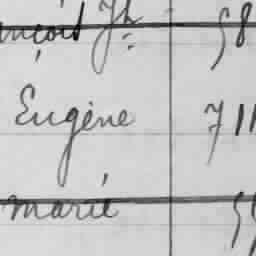 ançois Jh 58
Eugène 711
marié 55